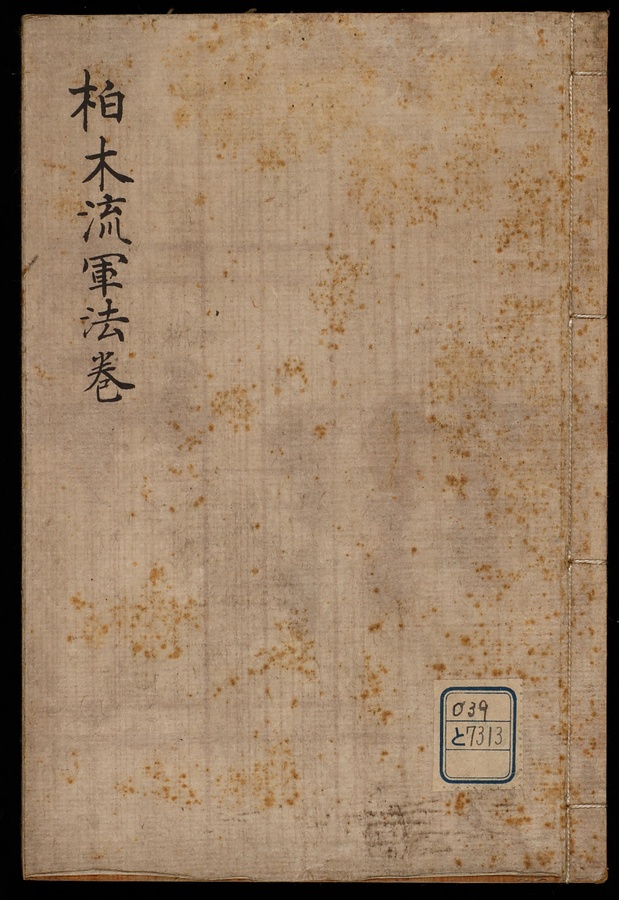 柏木流軍法巻
039
と7313